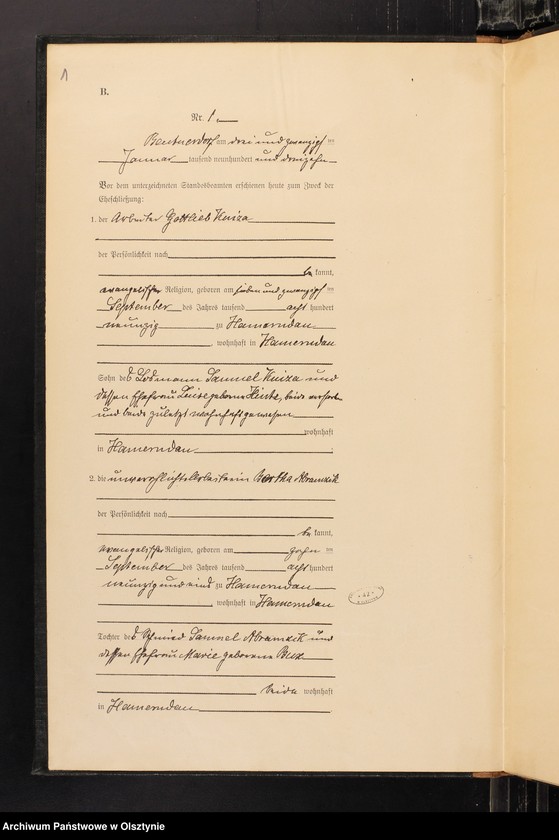 1
B.
Nr. 1.
Beutnerdorf am drei und zwanzigs ten
Januar tausend neunhundert und dreizehn
Vor dem unterzeichneten Standesbeamten erschienen heute zum Zweck der
Eheschließung:
1. der Arbeiter Gottlieb
der Persönlichkeit nach
be kannt,
evangelischer Religion, geboren am sieben und zwanzigs ten
September des Jahres tausend acht hundert
neunzig zu
, wohnhaft in
Sohn des Losmann Samuel und
dessen Ehefrau geborene beide
und beide zuletzt wohnhaft gewesen
wohnhaft
in
2. die unverehelichte Arbeiterin Bertha Abramzik
der Persönlichkeit nach
be kannt,
evangelischer Religion, geboren am zehn ten
September des Jahres tausend acht hundert
neunzig und eins zu
, wohnhaft in
Tochter des Schmied Samuel Abramzik und
dessen Ehefrau Marie geborene
beide wohnhaft
in
Archiwum Państwowe w Olsztynie